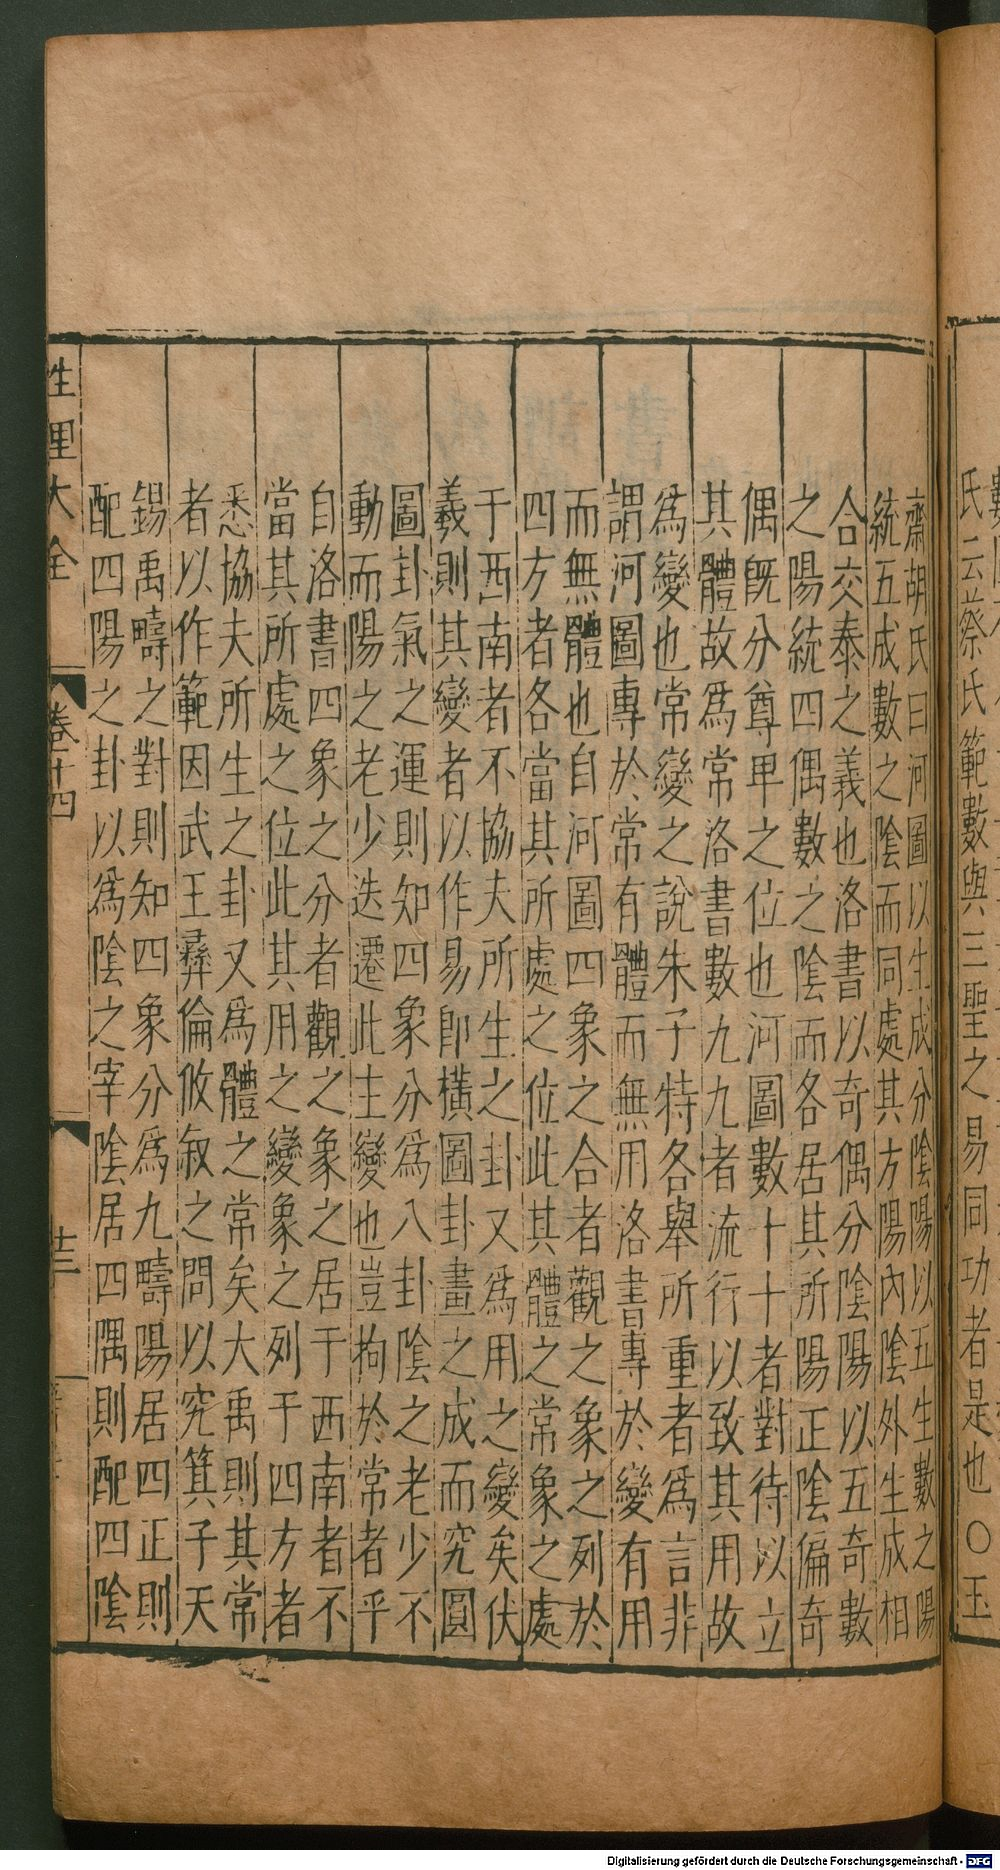 氏云蔡氏範數與三聖之易同功者是也〇玉
齋胡氏曰河圖以生成分陰陽以五生數之陽
統五成數之陰而同處其方陽內陰外生成相
合交泰之義也洛書以奇偶分陰陽以五奇數
之陽統四偶數之陰而各居其所陽正陰偏奇
偶旣分尊卑之位也河圖數十十者對待以立
其體故爲常洛書數九九者流行以致其用故
爲變也常變之說朱子特各舉所重者爲言非
謂河圖專於常有體而無用洛書專於變有用
而無體也自河圖四象之合者觀之象之列於
四方者各當其所處之位此其體之常象之處
于西南者不協夫所生之卦又爲用之變矣伏
羲則其變者以作易卽橫圖卦畫之成而究圓
圖卦氣之運則知四象分爲八卦陰之老少不
動而陽之老少迭遷此主變也豈拘於常者乎
自洛書四象之分者觀之象之居于西南者不
當其所處之位此其用之變象之列于四方者
悉協夫所生之卦又爲體之常矣大禹則其常
者以作範因武王彝倫攸敘之問以究箕子天
錫禹疇之對則知四象分爲九疇陽居四正則
配四陽之卦以爲陰之宰陰居四隅則配四陰
性理大全 卷十四 廿三
Digitalisierung gefördert durch die Deutsche Forschungsgemeinschaft - DFG